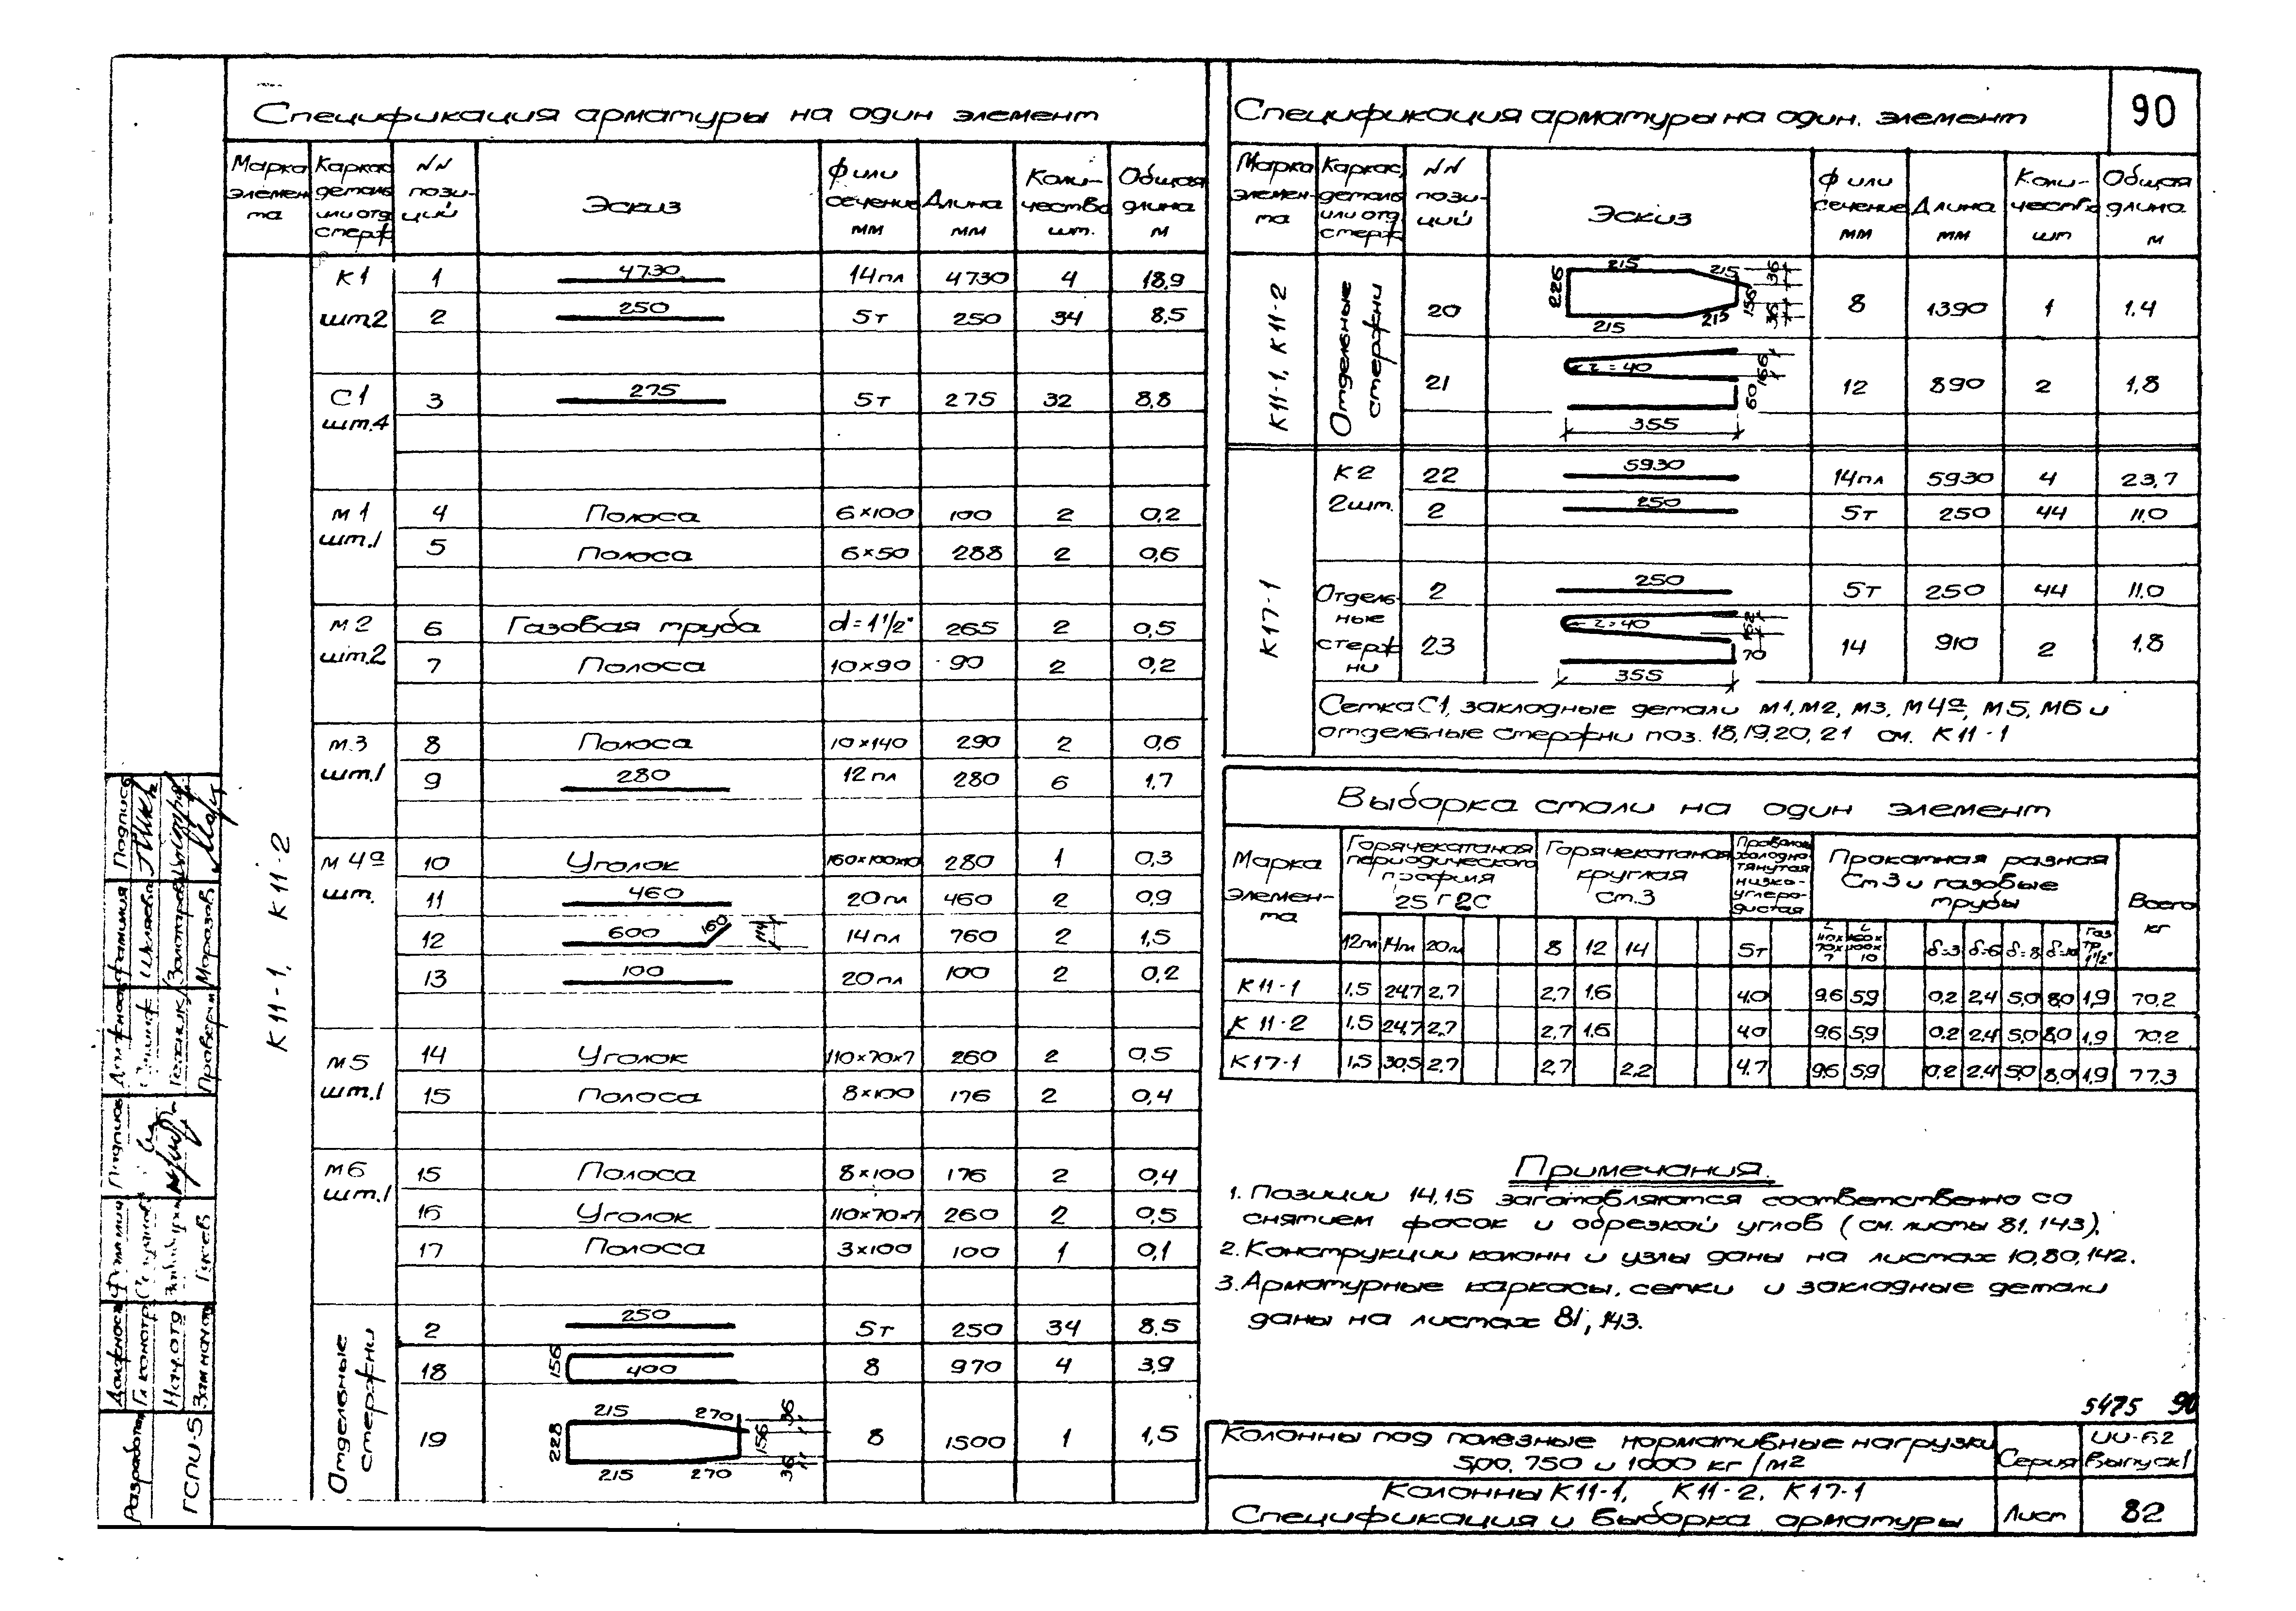 90
Спецификация арматуры на один элемент
Марка элемен та | Каркас деталь или отд стерж | NN пози- ций | Эскиз | Ф или сечение мм | Длина мм | Коли- чество шт. | Общая длина м
К11-1, К11-2
К1 шт2 | 1 | 4730 | 14пл | 4730 | 4 | 18,9
2 | 250 | 5т | 250 | 34 | 8,5
С1 шт.4 | 3 | 275 | 5т | 275 | 32 | 8,8
М1 шт.1 | 4 | Полоса | 6×100 | 100 | 2 | 0,2
5 | Полоса | 6×50 | 288 | 2 | 0,6
М2 шт.2 | 6 | Газовая труба | d=1 1/2" | 265 | 2 | 0,5
7 | Полоса | 10×90 | 90 | 2 | 0,2
М.3 шт.1 | 8 | Полоса | 10×140 | 290 | 2 | 0,6
9 | 280 | 12пл | 280 | 6 | 1.7
М 4а шт. | 10 | Уголок | 160×100×10 | 280 | 1 | 0,3
11 | 460 | 20пл | 460 | 2 | 0,9
12 | 600 160 114 | 14пл | 760 | 2 | 1,5
13 | 100 | 20пл | 100 | 2 | 0,2
М5 шт.1 | 14 | Уголок | 110×70×7 | 260 | 2 | 0,5
15 | Полоса | 8×100 | 176 | 2 | 0,4
М6 шт.1 | 15 | Полоса | 8×100 | 176 | 2 | 0,4
16 | Уголок | 110×70×7 | 260 | 2 | 0,5
17 | Полоса | 3×100 | 100 | 1 | 0,1
Отдельные стержни | 2 | 250 | 5т | 250 | 34 | 8.5
18 | 156 400 | 8 | 970 | 4 | 3,9
19 | 228 215 270 36 156 36 215 270 | 8 | 1500 | 1 | 1,5
Спецификация арматуры на один. элемент
Марка элемен- та | Каркас, деталь или отд стерж | NN пози- ций | Эскиз | Ф или сечение мм | Длина мм | Коли- честв шт | Общая длина м
К11-1, К11-2 | Отдельные стержни | 20 | 226 215 215 36 156 36 215 215 | 8 | 1390 | 1 | 1.4
21 | r=40 166 60 355 | 12 | 890 | 2 | 1,8
К17-1
К2 2шт. | 22 | 5930 | 14пл | 5930 | 4 | 23,7
2 | 250 | 5т | 250 | 44 | 11.0
Отдель- ные стерж ни | 2 | 250 | 5т | 250 | 44 | 11.0
23 | r=40 162 70 355 | 14 | 910 | 2 | 1.8
Сетка С1, закладные детали М1, М2, М3, М4а, М5, М6 и
отдельные стержни поз. 18,19,20,21 см. К11-1
Выборка стали на один элемент
Марка элемен- та | Горячекатаная периодического профиля 25Г2С | Горячекатаная круглая Ст.3 | холодно- тянутая низко- углеро- дистая | Прокатная разная Ст 3 и газовые трубы | Всего кг
12пл | 14пл | 20пл | 8 | 12 | 14 | 5т | L 110× 70× 7 | L 160× 100× 10 | δ=3 | δ=6 | δ=8 | δ=10 | Газ тр. 1 1/2"
К11-1 | 1,5 | 24,7 | 2,7 | 2,7 | 1.6 | 4.0 | 9.6 | 5,9 | 0.2 | 2.4 | 5,0 | 8,0 | 1,9 | 70.2
К 11-2 | 1,5 | 24,7 | 2,7 | 2,7 | 1.6 | 4.0 | 9.6 | 5,9 | 0.2 | 2.4 | 5,0 | 8,0 | 1,9 | 70.2
К17-1 | 1,5 | 30,5 | 2,7 | 2,7 | 2,2 | 4.7 | 9.6 | 5,9 | 0.2 | 2.4 | 5,0 | 8,0 | 1,9 | 77.3
Примечания.
1. Позиции 14,15 заготовляются соответственно со
снятием фасок и обрезкой углов (см. листы 81, 143).
2. Конструкции колонн и узлы даны на листах 10,80,142.
3. Арматурные каркасы, сетки и закладные детали
даны на листах 81, 143.
5475 90
Колонны под полезные нормативные нагрузки
500, 750 и 1000 кг/м2
Серия
ИИ-62
Выпуск 1
Колонны К11-1, К11-2, К17-1
Спецификация и выборка арматуры
Лист
82
Подпись
Фамилия
Шкляева
Морозов
Техник
Проверил
Должность
Гл. констр.
Нач.отд
Разработан
ГСПИ-5